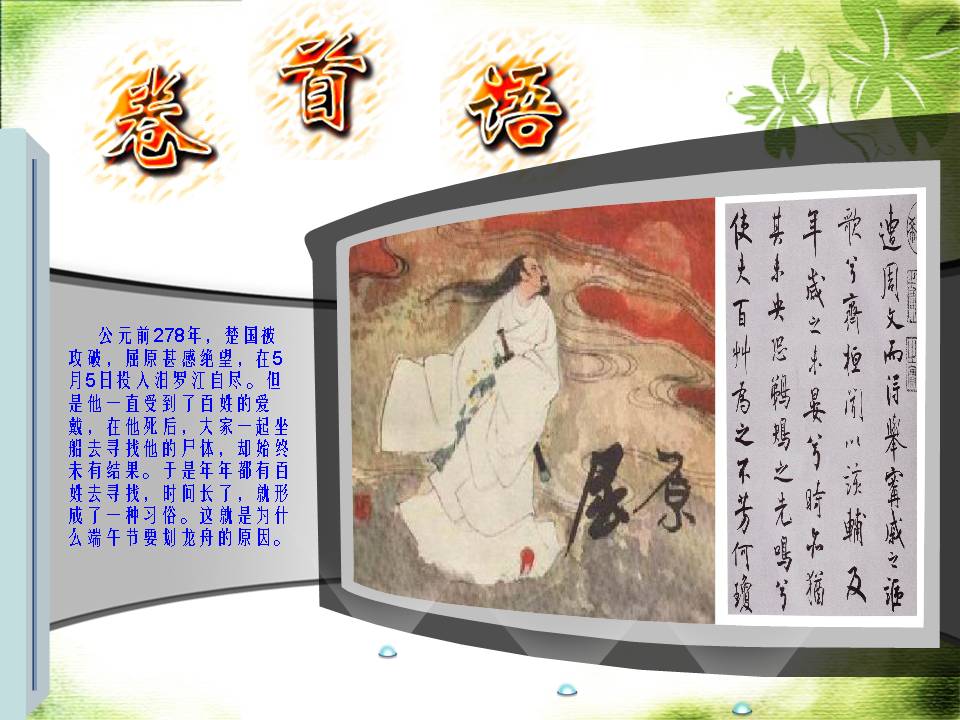 卷首语
公元前278年，楚国被
攻破，屈原甚感绝望，在5
月5日投入汨罗江自尽。但
是他一直受到了百姓的爱
戴，在他死后，大家一起坐
船去寻找他的尸体，却始终
未有结果。于是年年都有百
姓去寻找，时间长了，就形
成了一种习俗。这就是为什
么端午节要划龙舟的原因。
屈原
遭周文而得举甯戚之讴
歌兮齊桓聞以该輔及
年歲之未晏兮時亦猶
其未央恐鵜鴂之先鳴兮
使夫百艸為之不芳何瓊